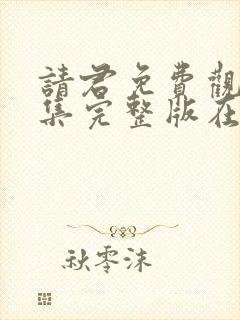 請君免費觀
集完整版在
秋零沫